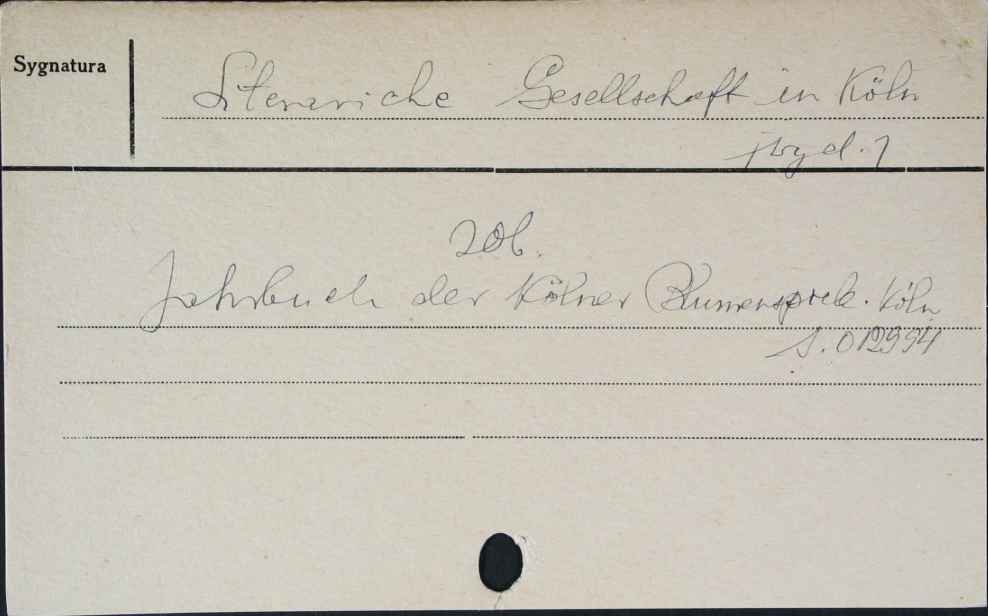 Sygnatura
Literariche Gesellschaft in Köln
[wyd.]
zob.
Jahrbuch der Kölner Blumenspiele. Köln
S. 012994